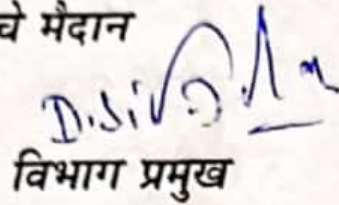 चे मैदान
विभाग प्रमुख